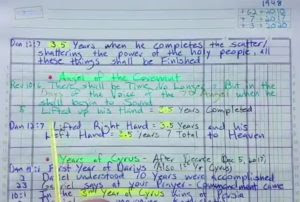 1948
+ 62 = 2010
+ 7 = 2017
+ 3 = 2020
Dan 12:7 3.5 Years when he completes the scatter/
shattering the power of the holy people, all
these things shall be Finished
Angel of the Covenant
Rev 10:6 There shall be Time No Longer. But in the
Days of the Voice of the 7th Angel when he
shall begin to Sound
5 Lifted up his Hand = 3.5 Years Completed
Dan 12:7 Lifted Right Hand = 3.5 Years and his
Left Hand = 3.5 Years 7 Total to Heaven
Years of Cyrus - After Divorce (Dec 5, 2017)
Dan 9:1 First Year of Darius (Also 1st yr Cyrus)
2 Daniel understood 70 years were accomplished
23 Gabriel says at your Prayer - Commandment came
10:1 In the 3rd Year of Cyrus King of Persia